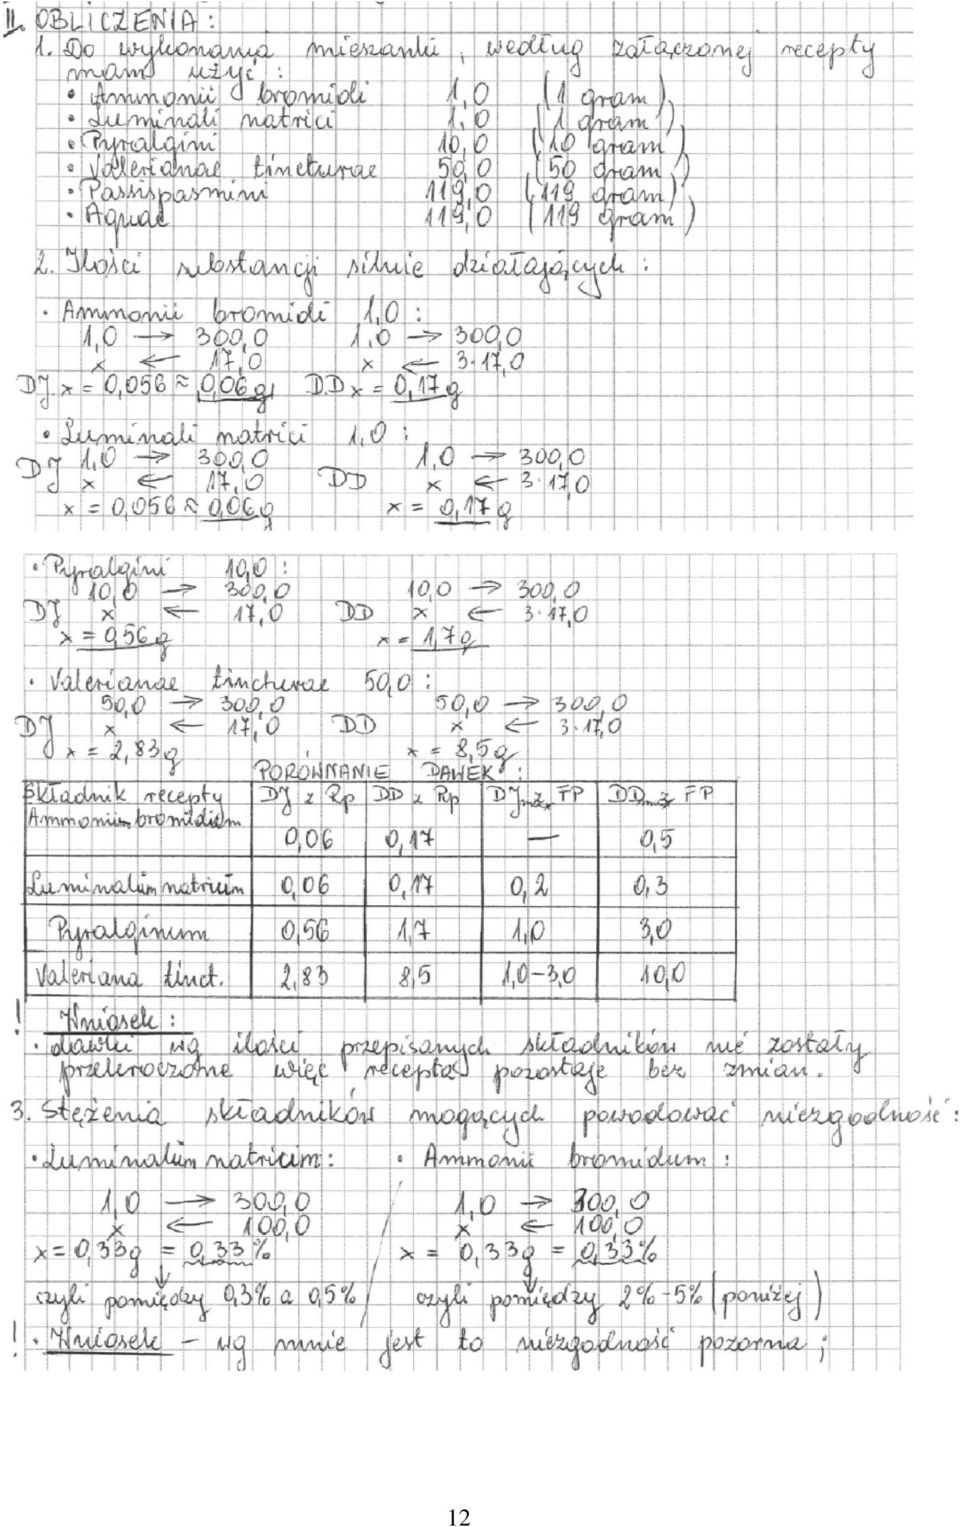 II. OBLICZENIA :
1. Do wykonania mieszanki, według załączonej recepty
mam użyć :
• Ammonii bromidi 1,0 (1 gram),
• Luminali natrici 1,0 (1 gram),
• Pyralgini 10,0 (10 gram)
• Valerianae tincturae 50,0 (50 gram)
• Passispasmini 119,0 (119 gram)
• Aquae 119,0 (119 gram)
2. Ilości substancji silnie działających :
• Ammonii bromidi 1,0 :
1,0 → 300,0 1,0 → 300,0
x ← 17,0 x ← 3·17,0
DJ x = 0,056 ≈ 0,06 g DD x = 0,17 g
• Luminali natrici 1,0 :
DJ 1,0 → 300,0 1,0 → 300,0
x ← 17,0 DD x ← 3·17,0
x = 0,056 ≈ 0,06 g x = 0,17 g
• Pyralgini 10,0 :
10,0 → 300,0 10,0 → 300,0
DJ x ← 17,0 DD x ← 3·17,0
x = 0,56 g x = 1,7 g
• Valerianae tincturae 50,0 :
50,0 → 300,0 50,0 → 300,0
DJ x ← 17,0 DD x ← 3·17,0
x = 2,83 g x = 8,5 g
PORÓWNANIE DAWEK :
Składnik recepty DJ z Rp DD z Rp DJ max ż FP DD max ż FP
Ammonium bromidum 0,06 0,17 — 0,5
Luminalum natricum 0,06 0,17 0,2 0,3
Pyralginum 0,56 1,7 1,0 3,0
Valeriana tinct. 2,83 8,5 1,0-3,0 10,0
! Wniosek :
• dawki wg ilości przepisanych składników nie zostały
przekroczone więc recepta pozostaje bez zmian.
3. Stężenia składników mogących powodować niezgodność :
• Luminalum natricum : • Ammonii bromidum :
1,0 → 300,0 1,0 → 300,0
x ← 100,0 x ← 100,0
x = 0,33g = 0,33% x = 0,33g = 0,33%
czyli pomiędzy 0,3% a 0,5% / czyli pomiędzy 2%-5% (poniżej)
! • Wniosek - wg mnie jest to niezgodność pozorna ;
12